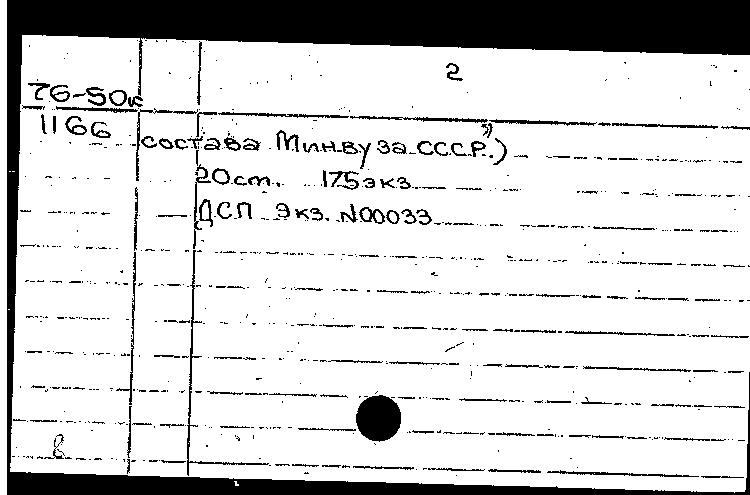 2
76-50к
1166 состава Минвуза СССР.")
20 cm. 175 экз
ДСП Экз. N00033
8